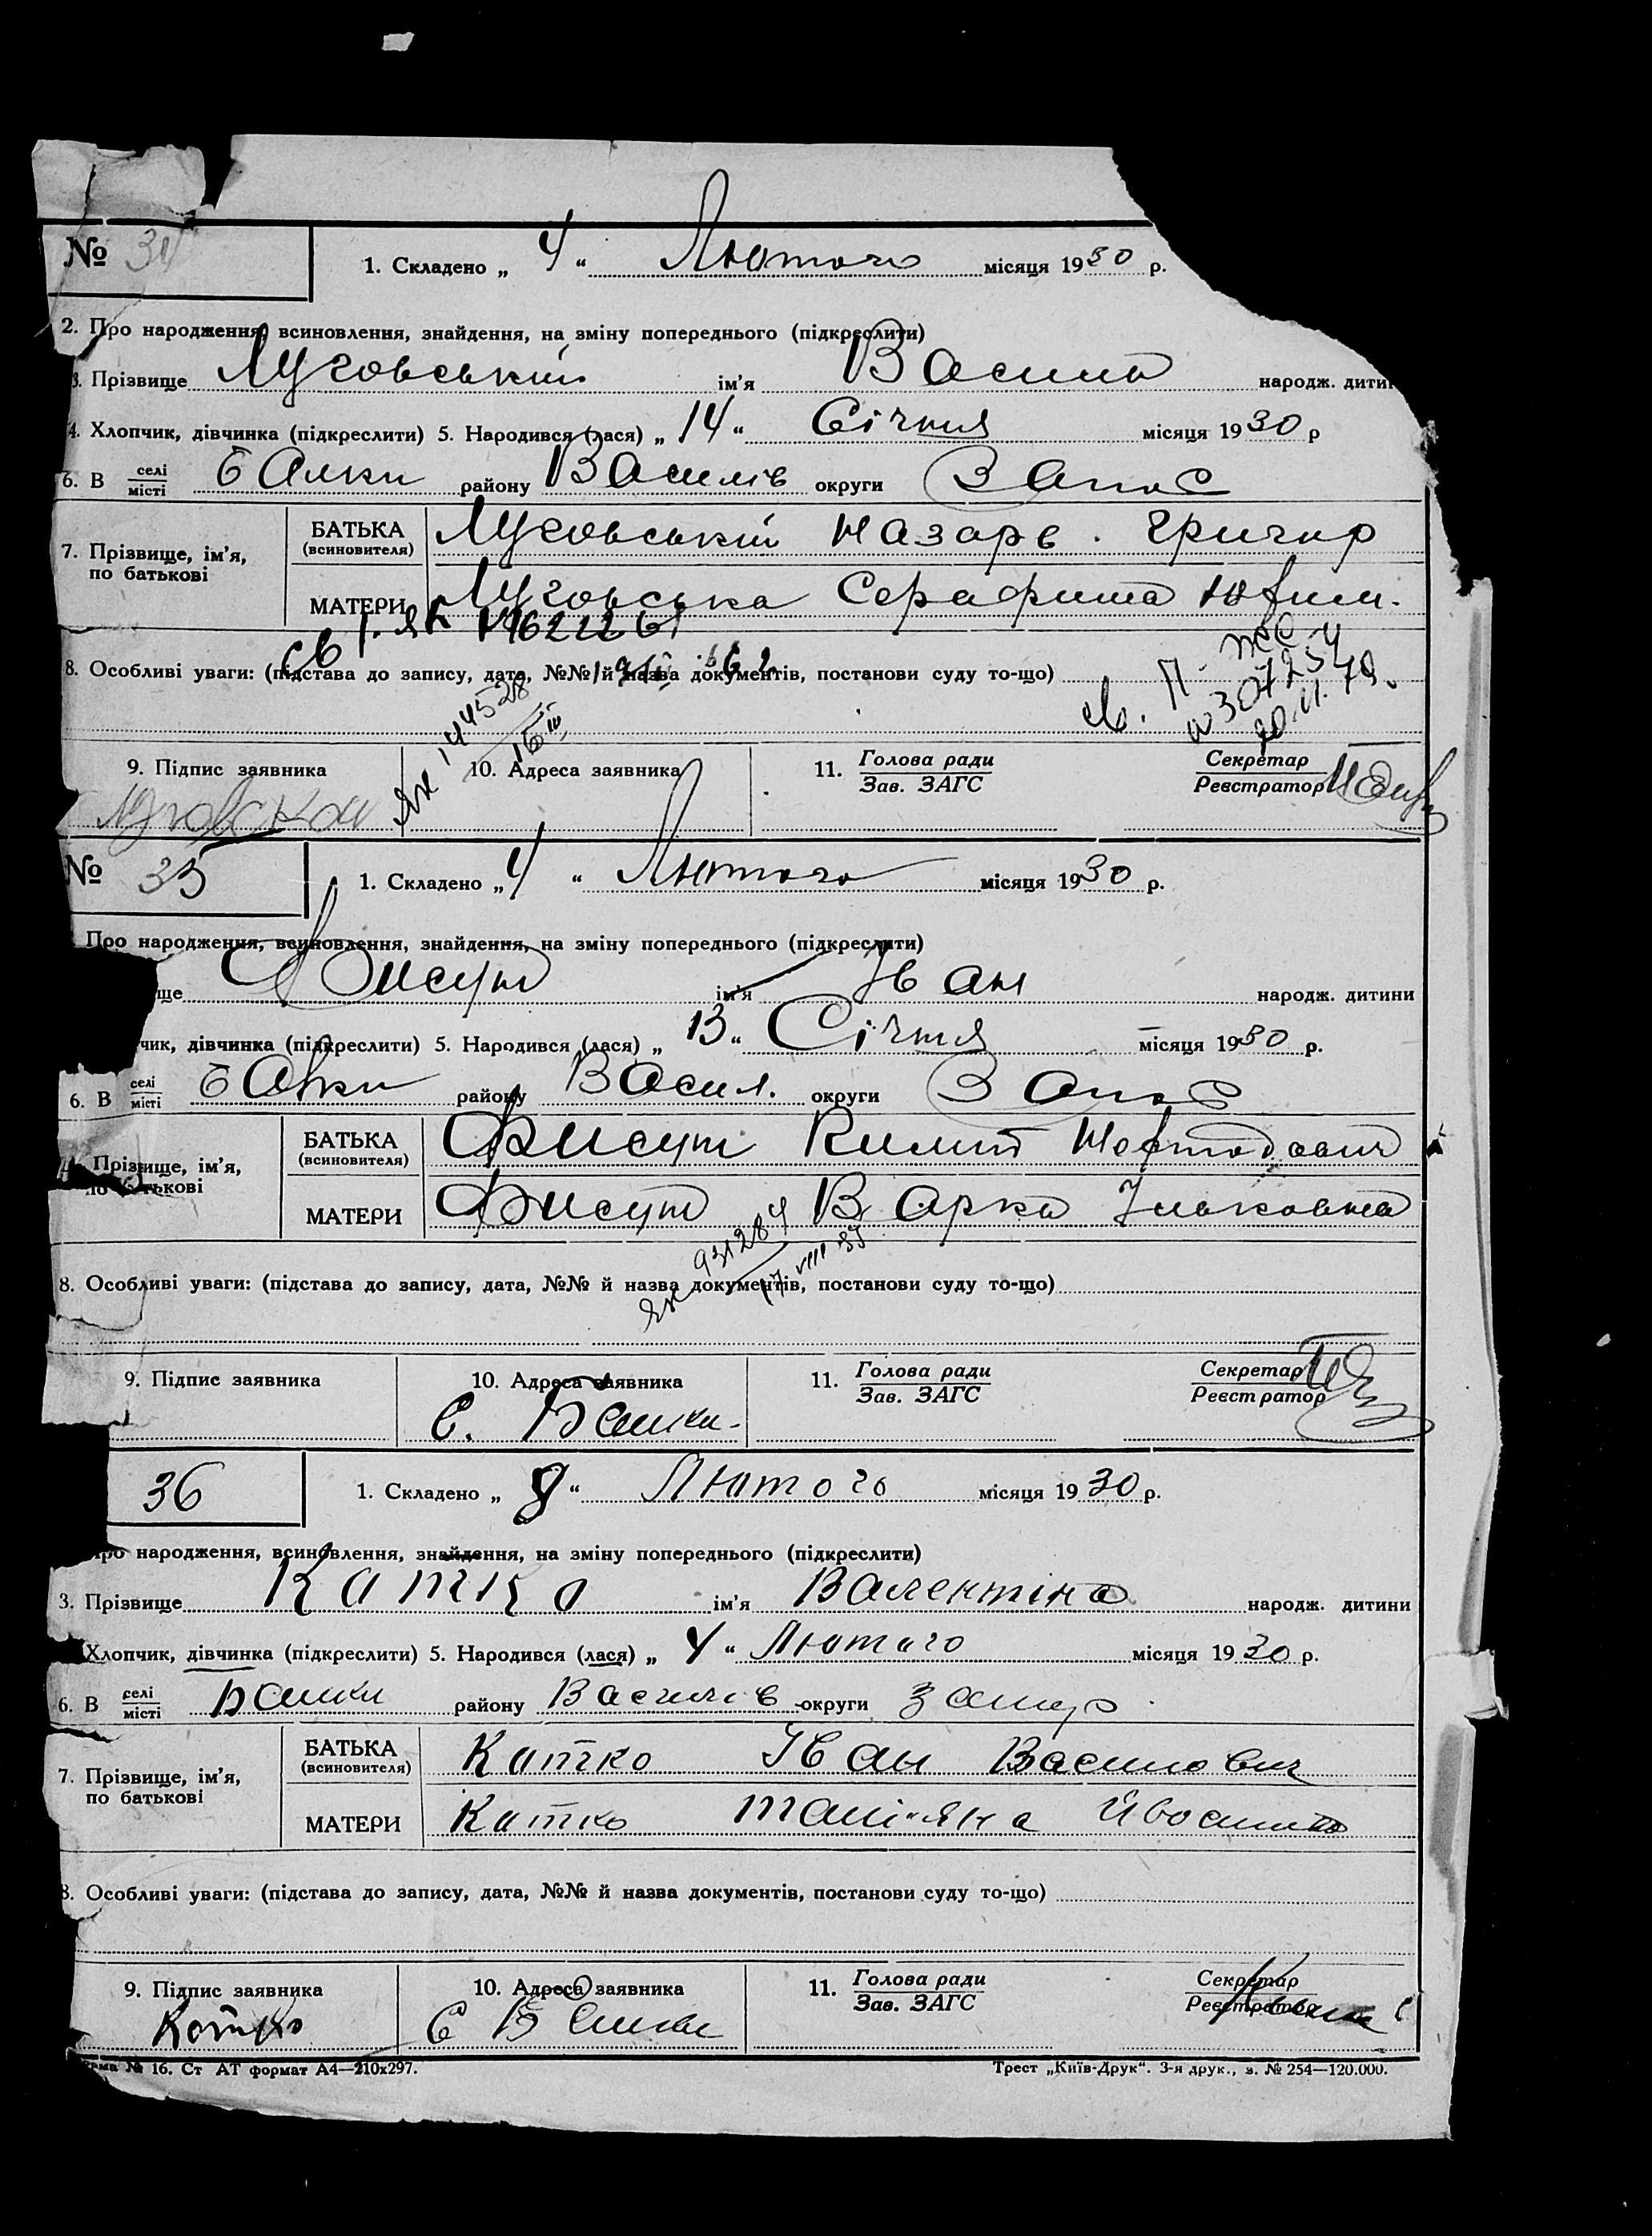 № 34
1. Складено „ 4 “ Лютого місяця 1930 р.
2. Про народження, всиновлення, знайдення, на зміну попереднього (підкреслити)
3. Прізвище Луговський ім’я Василь народж. дитин
4. Хлопчик, дівчинка (підкреслити) 5. Народився (лася) „ 14 “ Січня місяця 1930 р
6. В селі/місті Балки району Василів округи Запос
7. Прізвище, ім’я, по батькові
БАТЬКА (всиновителя) Луговський Назарв. Григир
МАТЕРИ Луговська Серафима Юфим.
св
8. Особливі уваги: (підстава до запису, дата, №№ й назва документів, постанови суду то-що)
ЯК 144528
307254
9. Підпис заявника
10. Адреса заявника
11. Голова ради
Зав. ЗАГС
Секретар
Реєстратор
№ 35
1. Складено „ 4 “ Лютого місяця 1930 р.
Про народження, всиновлення, знайдення, на зміну попереднього (підкреслити)
ще Фисун ім’я Іван народж. дитини
чик, дівчинка (підкреслити) 5. Народився (лася) „ 13 “ Січня місяця 1930 р.
6. В селі/місті Балки району Васил. округи Запос
Прізвище, ім’я, по батькові
БАТЬКА (всиновителя) Фисун Килип
МАТЕРИ Фисун Варка Ільковна
ЯК 931284
17 VIII 35
8. Особливі уваги: (підстава до запису, дата, №№ й назва документів, постанови суду то-що)
9. Підпис заявника
10. Адреса заявника
11. Голова ради
Зав. ЗАГС
Секретар
Реєстратор
С. Балки
36
1. Складено „ 8 “ Лютого місяця 1930 р.
про народження, всиновлення, знайдення, на зміну попереднього (підкреслити)
3. Прізвище Катко ім’я Валентіна народж. дитини
Хлопчик, дівчинка (підкреслити) 5. Народився (лася) „ 4 “ Лютого місяця 1930 р.
6. В селі/місті Балки району Василів округи
7. Прізвище, ім’я, по батькові
БАТЬКА (всиновителя) Катко Іван Василович
МАТЕРИ Катко
8. Особливі уваги: (підстава до запису, дата, №№ й назва документів, постанови суду то-що)
9. Підпис заявника
10. Адреса заявника
11. Голова ради
Зав. ЗАГС
Секретар
Реєстратор
Катко
С Балки
№ 16. Ст АТ формат А4—210x297.
Трест „Київ-Друк“. 3-я друк., з. № 254—120.000.